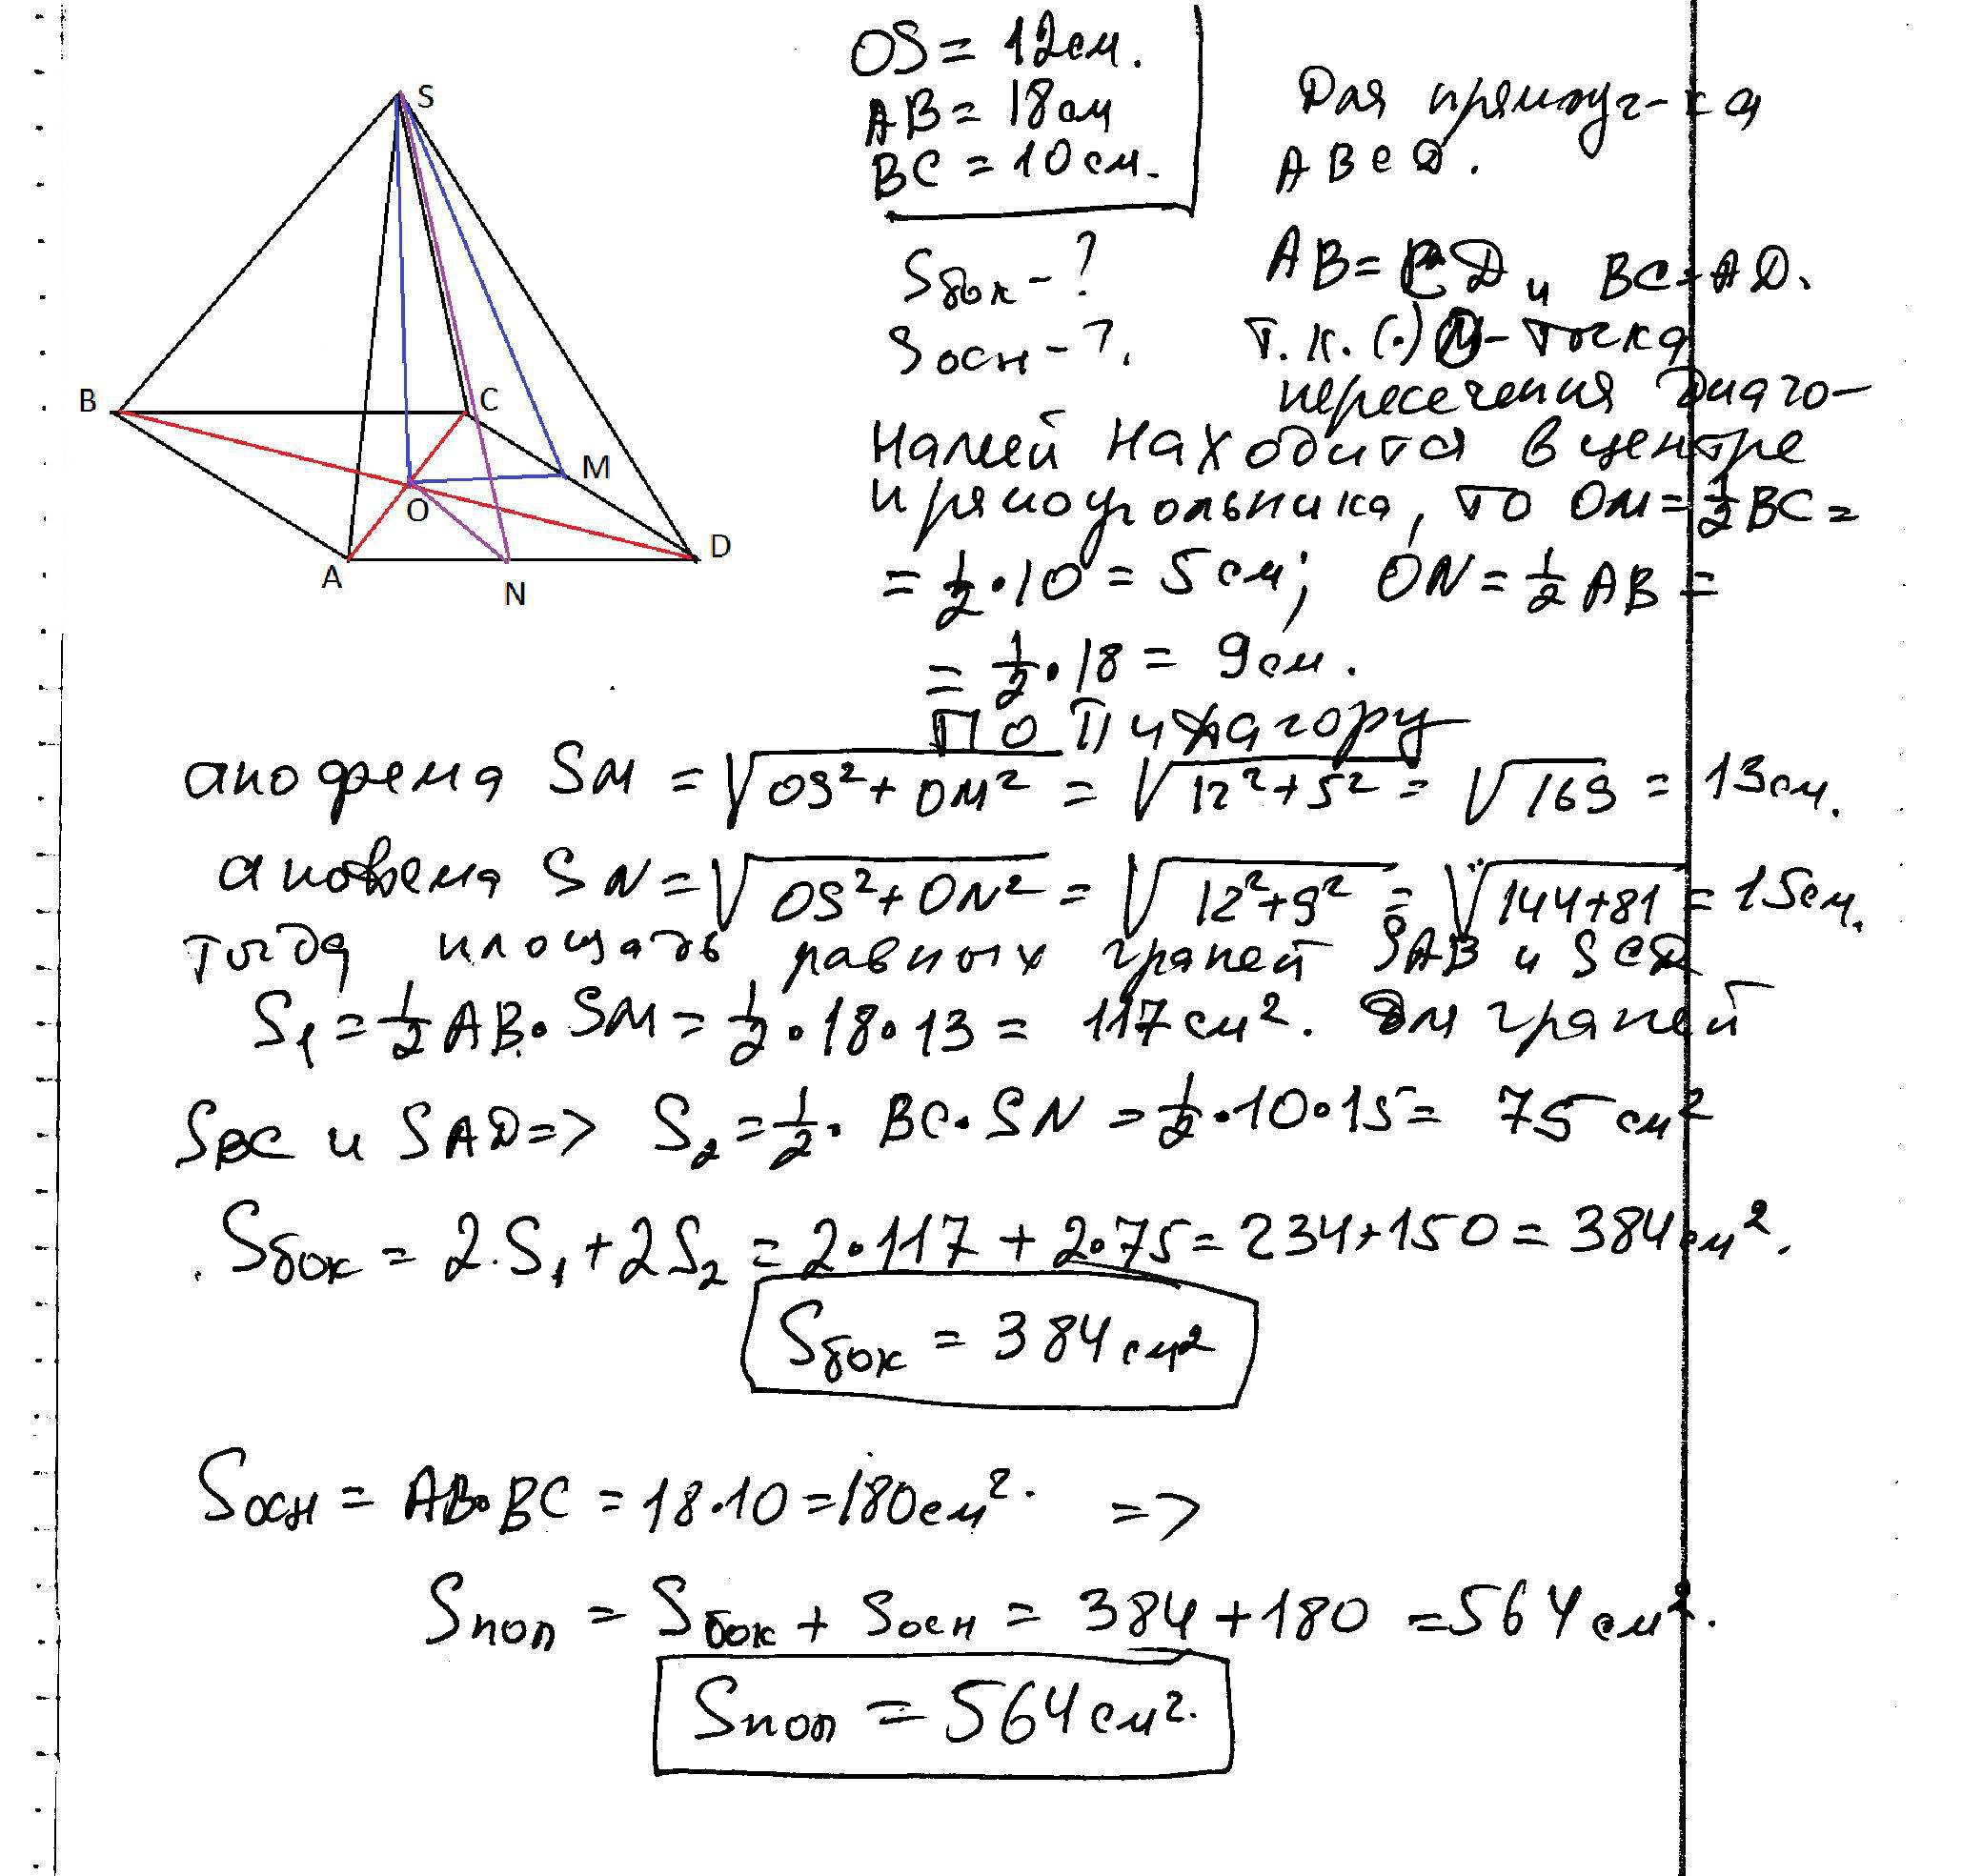 S
B
C
M
O
D
A
N
OS = 12см.
AB = 18см
BC = 10см.
Sбок - ?
Sосн - ?.
Для прямоуг-ка
ABCD.
AB = CD и BC = AD.
Т.к. (·) O - точка
пересечения диаго-
налей находится в центре
прямоугольника, то OM = 1/2 BC =
= 1/2 · 10 = 5см; ON = 1/2 AB =
= 1/2 · 18 = 9см.
По Пифагору
апофема SM = √(OS² + OM²) = √(12² + 5²) = √169 = 13см.
апофема SN = √(OS² + ON²) = √(12² + 9²) = √(144 + 81) = 15см.
тогда площадь равных граней SAB и SCD
S₁ = 1/2 AB · SM = 1/2 · 18 · 13 = 117 см². Для граней
SBC и SAD => S₂ = 1/2 · BC · SN = 1/2 · 10 · 15 = 75 см²
Sбок = 2·S₁ + 2S₂ = 2·117 + 2·75 = 234 + 150 = 384 см².
Sбок = 384 см²
Sосн = AB·BC = 18·10 = 180 см². =>
Sпол = Sбок + Sосн = 384 + 180 = 564 см².
Sпол = 564 см².